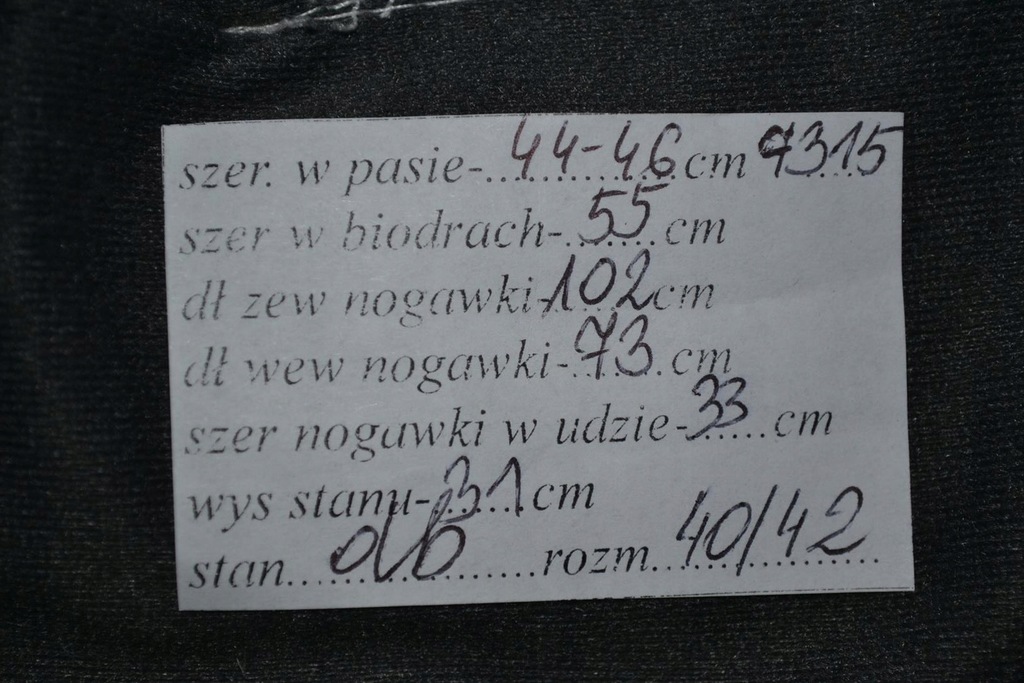 szer. w pasie-..44-46.cm 7315
szer w biodrach-.55..cm
dł zew nogawki-102cm
dł wew nogawki-.73.cm
szer nogawki w udzie-33..cm
wys stanu-.31.cm
stan....db.......rozm..40/42..